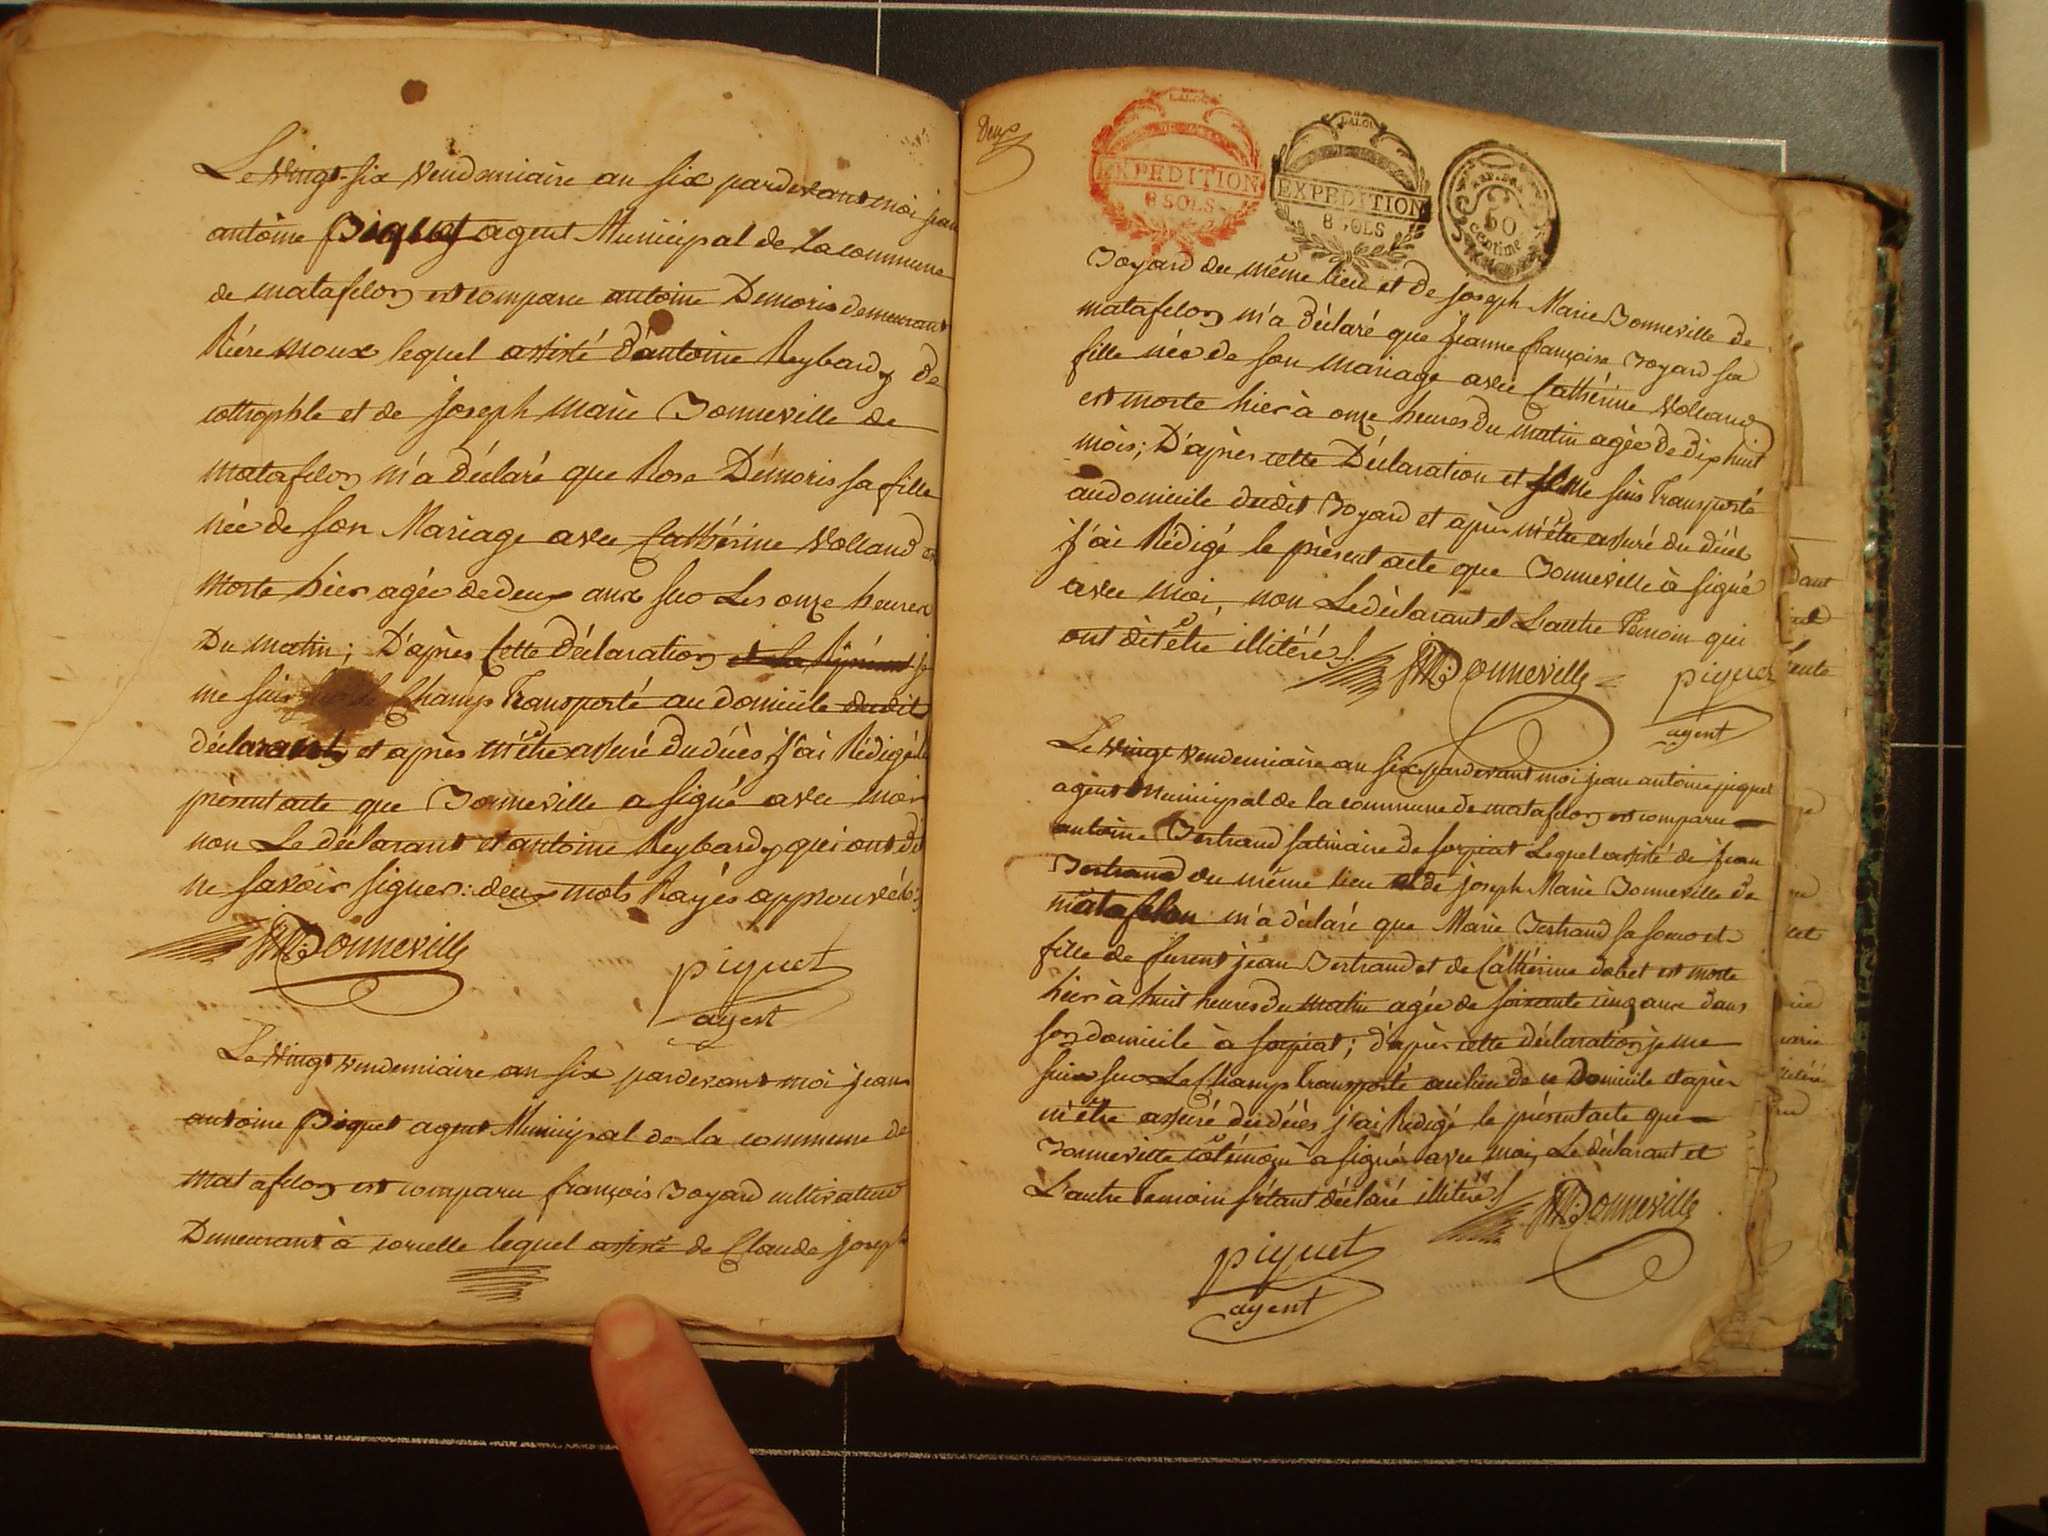 Le vingt-six vendemiaire an six pardevant moi jean
antoine Piquet agent Municipal de la commune
de matafelon est comparu antoine Demoris demeurant
Rière moux lequel assisté d'antoine Reybard de
et de joseph marie Bonneville de
matafelon m'a déclaré que Rose Démoris sa fille
née de son Mariage avec Cathérine Volland
morte hier agée de deux ans sur Les onze heures
Du matin ; D'après Cette Déclaration et Le Réprésent je
me suis Champ Transporté au domicile dudit
déclarant et après m'être assuré du décès j'ai Rédigé le
présent acte que Bonneville a signé avec moi
non Le déclarant et antoine Reybard qui ont dit
ne savoir signer : deux mots Rayés approuvés
JM Bonneville
piquet
agent
Le vingt vendemiaire an six pardevant moi jean
antoine Piquet agent Municipal de la commune de
matafelon est comparu françois Boyard cultivateur
Demeurant à corcelle lequel assisté de Claude joseph
Deux
LALOI
EXPEDITION
8 SOLS
LALOI
EXPEDITION
8 SOLS
50
centime
Boyard du même lieu et de joseph Marie Bonneville de
matafelon m'a déclaré que jeanne françoise Boyard sa
fille née de son mariage avec Cathérine Volland
est morte hier à onze heures du matin agée de dix huit
mois ; D'après cette Déclaration et je me suis Transporté
au domicile dudit Boyard et après m'être assuré du décès
j'ai Rédigé le présent acte que Bonneville à signé
avec moi, non Le déclarant et L'autre Temoin qui
ont dit être illitéré
JM Bonneville
piquet
agent
Le vingt vendemiaire an six pardevant moi jean antoine piquet
agent Municipal de la commune de matafelon est comparu
antoine Bertrand de sorpiat Lequel assisté de jean
Bertrand du même lieu et de joseph Marie Bonneville de
matafelon m'a déclaré que Marie Bertrand sa soeur et
fille de jean Bertrand et de Cathérine est morte
hier à huit heures du matin agée de soixante cinq ans dans
son domicile à sorpiat ; d'après cette déclaration je me
suis sur Le Champ Transporté au lieu de ce Domicile et après
m'être assuré du décès j'ai Rédigé le présent acte que
Bonneville témoin à signé avec moi, Le déclarant et
L'autre Temoin s'étant déclaré illitéré
JM Bonneville
piquet
agent